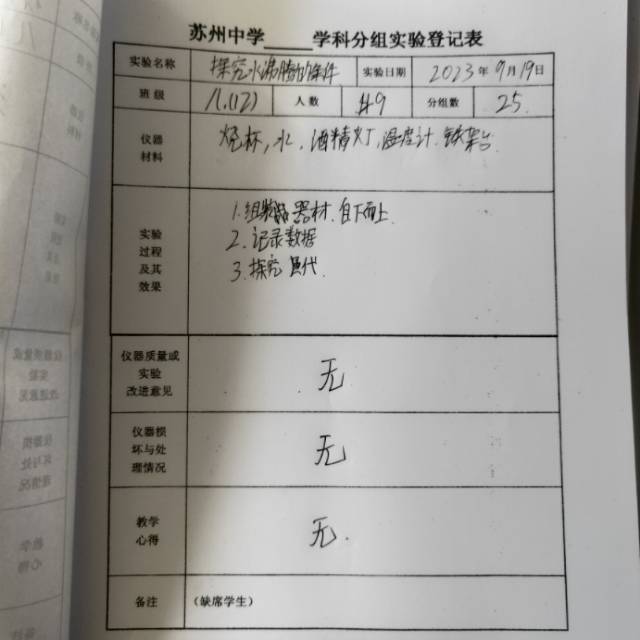 苏州中学____学科分组实验登记表
实验名称 探究水沸腾的条件 实验日期 2023年9月19日
班级 八(12) 人数 49 分组数 25
仪器
材料
烧杯,水,酒精灯,温度计.铁架台.
实验
过程
及其
效果
1.组装器材.自下而上.
2.记录数据
3.探究
仪器质量或
实验
改进意见
无
仪器损
坏与处
理情况
无
教学
心得
无.
备注 (缺席学生)